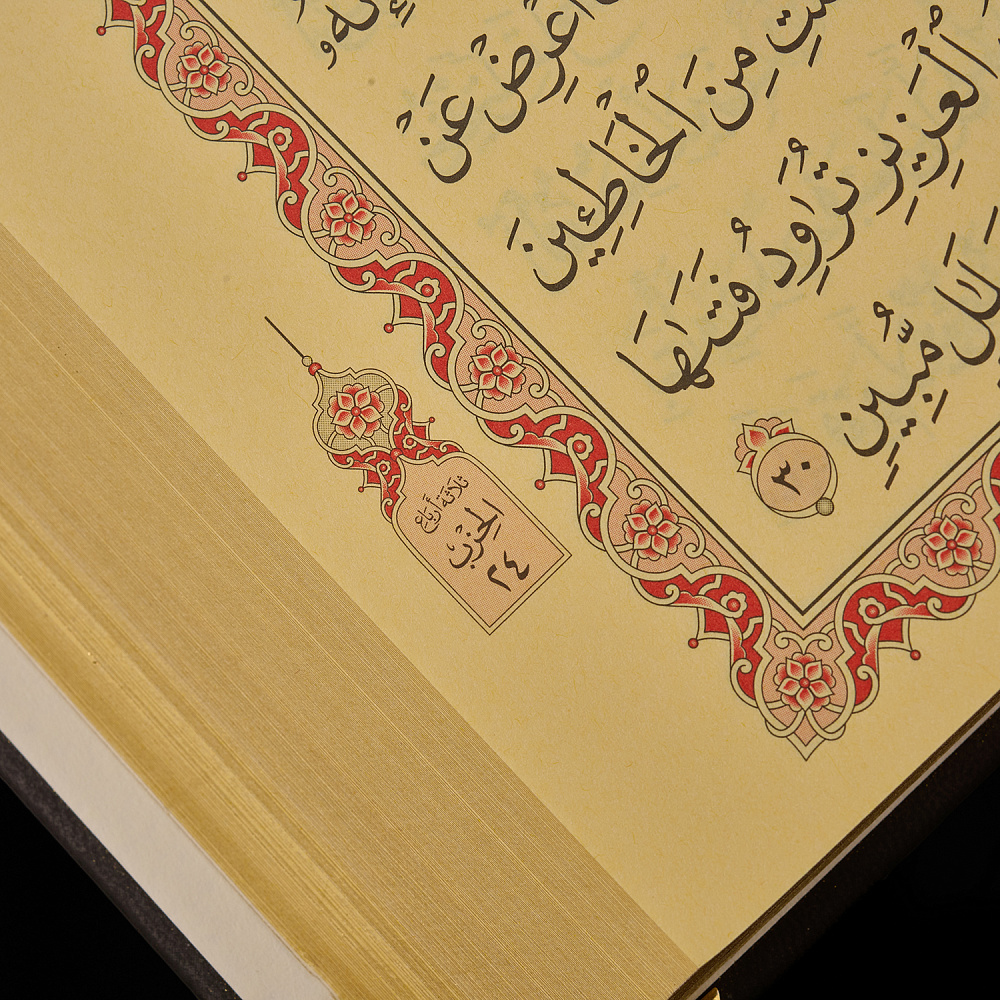 إِنَّهُۥ
أَعْرِضْ عَنْ
مِنَ ٱلْخَاطِـِٔينَ
ٱلْعَزِيزِ تُرَٰوِدُ فَتَىٰهَا
مُّبِينٍ ٣٠
ثلاثة أرباع
الحزب
٢٤